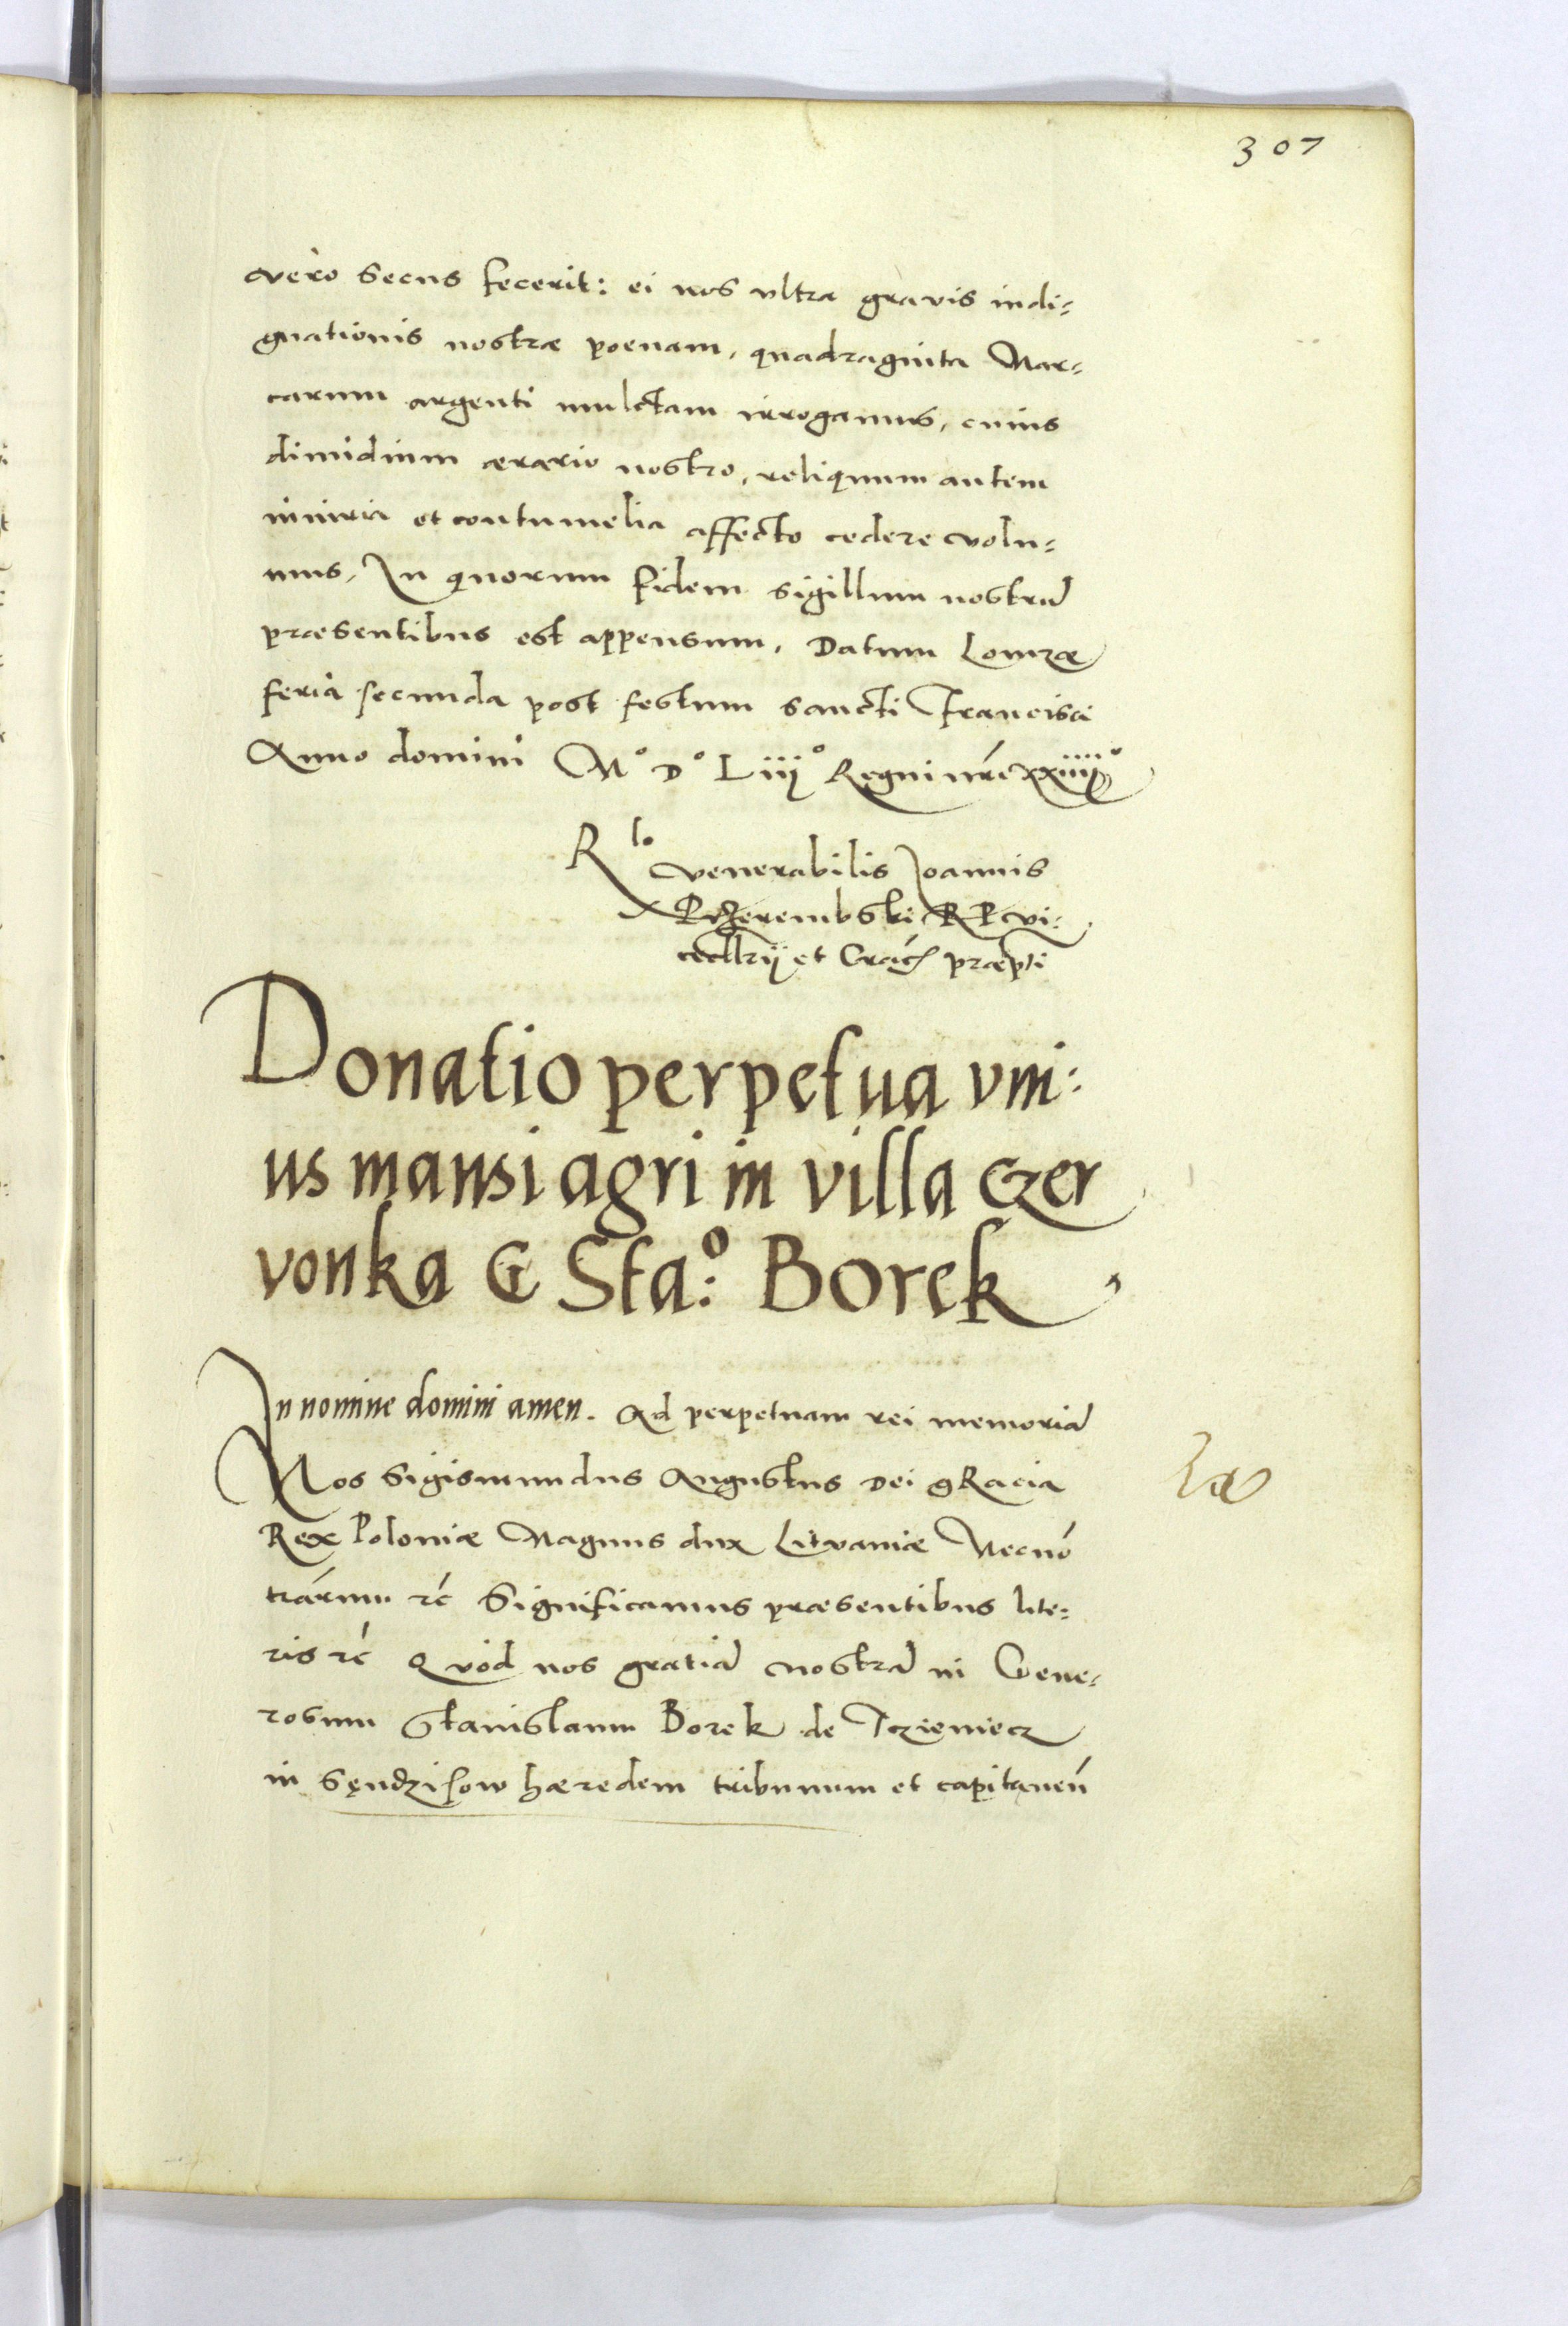 307
vero secus fecerit: ei nos vltra gravis indi-
gnationis nostræ poenam, quadraginta Mar-
carum argenti mulctam irrogamus, cuius
dimidium ærario nostro, reliquum autem
iniuria et contumelia affecto cedere volu-
mus. In quorum fidem sigillum nostrū
præsentibus est appensum. Datum Lomzæ
feria secunda post festum sancti Francisci
Anno domini M° D° Liij° Regni nrē xxiiij°
R lo venerabilis Joannis
Przerembski RP vi-
cecllrij et Crac præpti
Donatio perpetua vni:
us mansi agri in villa czer
vonka G Sta°: Borek
In nomine domini amen. Ad perpetuam rei memoriā
Nos Sigismundus Augustus Dei gRacia
Rex Poloniæ Magnus dux Litvaniæ Necnō
trārum rc̄ Significamus præsentibus lite-
ris rc̄ Quod nos gratiā nostrā in Gene-
rosum Stanislaum Borek de Trzieniecz
in Sęndzisow hæredem tribunum et capitaneū